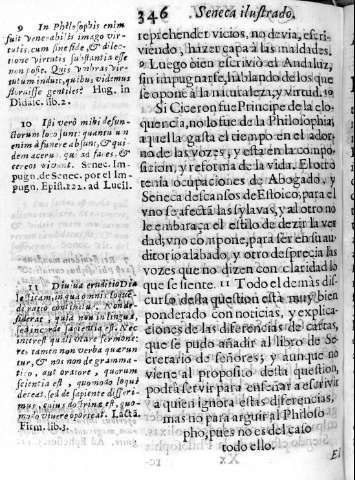 346 Seneca ilustrado.
9 In Philosophis enim
fuit venerabilis imago vir-
tutis: cum sine fide, & dile-
ctione virtutis substantia esse
non posit. Quis
 tutum induit, quibus videmus
floruisse gentiles? Hug. in
Didasc. lib. 2.
10 Isti verò mihi defun-
ctorum loco sunt: quantu~ un
enim à funere absunt, & qui-
dem acerui, qui ad faces, &
cereos vivunt. Senec. Im-
pugn. de Senec. por el Im-
pugn. Epist. 122. ad Lucil.
11 Divina eruditio Dia
lecticam, in qua omnis loque~
di ratio continetur.
 quia non in lingua,
sed in corde sapientia est. Nec
interest quali utare sermone:
res tamen non verba quærun
tur, & non de gramma-
tico, aut oratore, quorum
scientia est, quomodo loqui
deceat, sed de sapiente disseri-
mus, cuius doctrina est, quo-
modo vivere oporteat. Lacta.
Firm. lib. 3.
reprehender vicios, no devia, escri-
viendo, hazer capa à las maldades.
9 Luego bien escrivió el Andaluz,
sin impugnarse, hablando de los que
se opone à la naturaleza, y virtud. 10
Si Ciceron fue Principe de la elo-
quencia, no lo fue de la Philosophia;
aquella gasta el tiempo en el ador-
no de las vozes; y esta en la compo-
sicion, y reforma de la vida. El otro
tenia ocupaciones de Abogado, y
Seneca descansos de Estoico, para el
vno se afecta las sylavas, y al otro no
le embaraça el estilo de dezir la ver
dad; vno compone, para ser en su au-
ditorio alabado, y otro desprecia las
vozes que no dizen con claridad lo
que se siente. 11 Todo el demàs dis-
curso desta question està muy bien
ponderado con noticias, y explica-
ciones de las diferencias de cartas,
que se pudo añadir al libro de Se-
cretario de señores; y aunque no
viene al proposito desta question,
podrà servir para enseñar a escrivir
a quien ignora estas diferencias,
mas no para arguir al Philoso-
pho, pues no es del caso
todo ello.
El